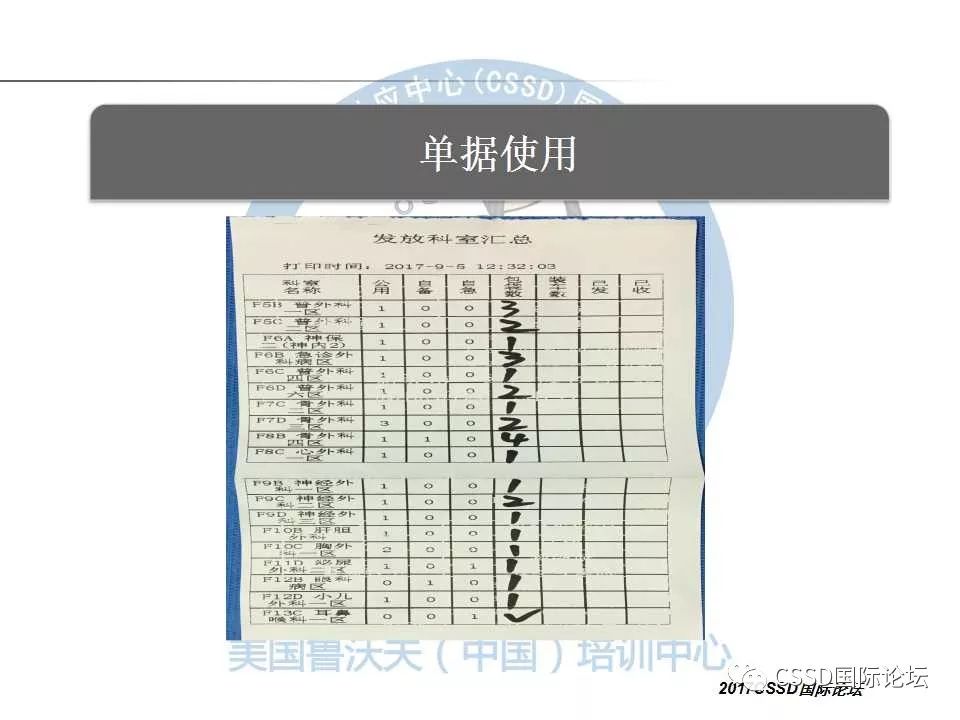 应中心(CSSD)国
单据使用
发放科室汇总
打印时间: 2017-9-5 12:32:03
科室名称 公用 自备 自急 包装袋数 装车数 已发 已收
F5B 普外科一区 1 0 0 3
F5C 普外科二区 1 0 0 2
F6A 神保二(神内2) 1 0 0 1
F6B 急诊外科病区 1 0 0 3
F6C 普外科四区 1 0 0 1
F6D 普外科六区 1 0 0 2
F7C 骨外科二区 1 0 0 1
F7D 骨外科三区 3 0 0 2
F8B 骨外科四区 1 1 0 4
F8C 心外科一区 1 0 0 1
F9B 神经外科一区 1 0 0 1
F9C 神经外科二区 1 0 0 2
F9D 神经外科三区 1 0 0 1
F10B 肝胆外科 1 0 0 1
F10C 胸外科一区 2 0 0 1
F11D 泌尿外科二区 1 0 1 1
F12B 眼科病区 0 1 0 1
F12D 小儿外科一区 1 0 0 1
F13C 耳鼻喉科一区 0 0 1 ✓
美国鲁沃夫(中国)培训中心
CSSD国际论坛
2017CSSD国际论坛